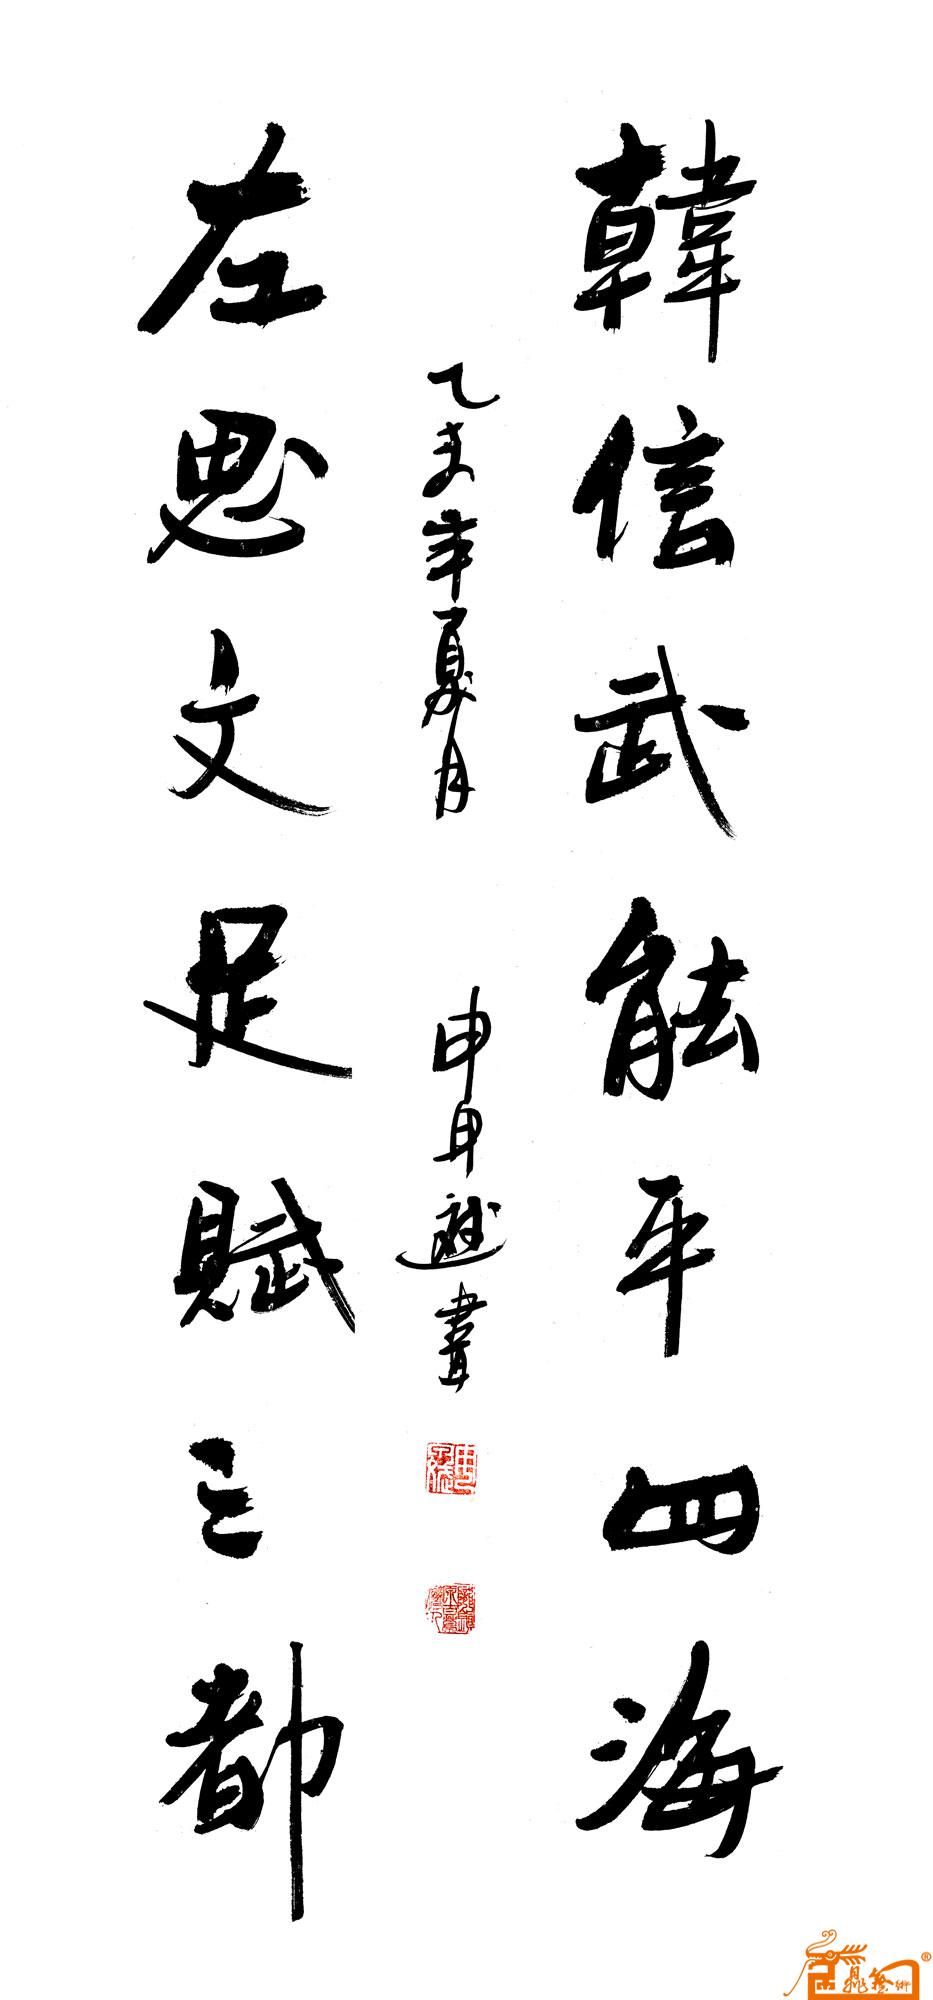 韓信武能平四海
左思文足賦三都
乙未年夏月
書